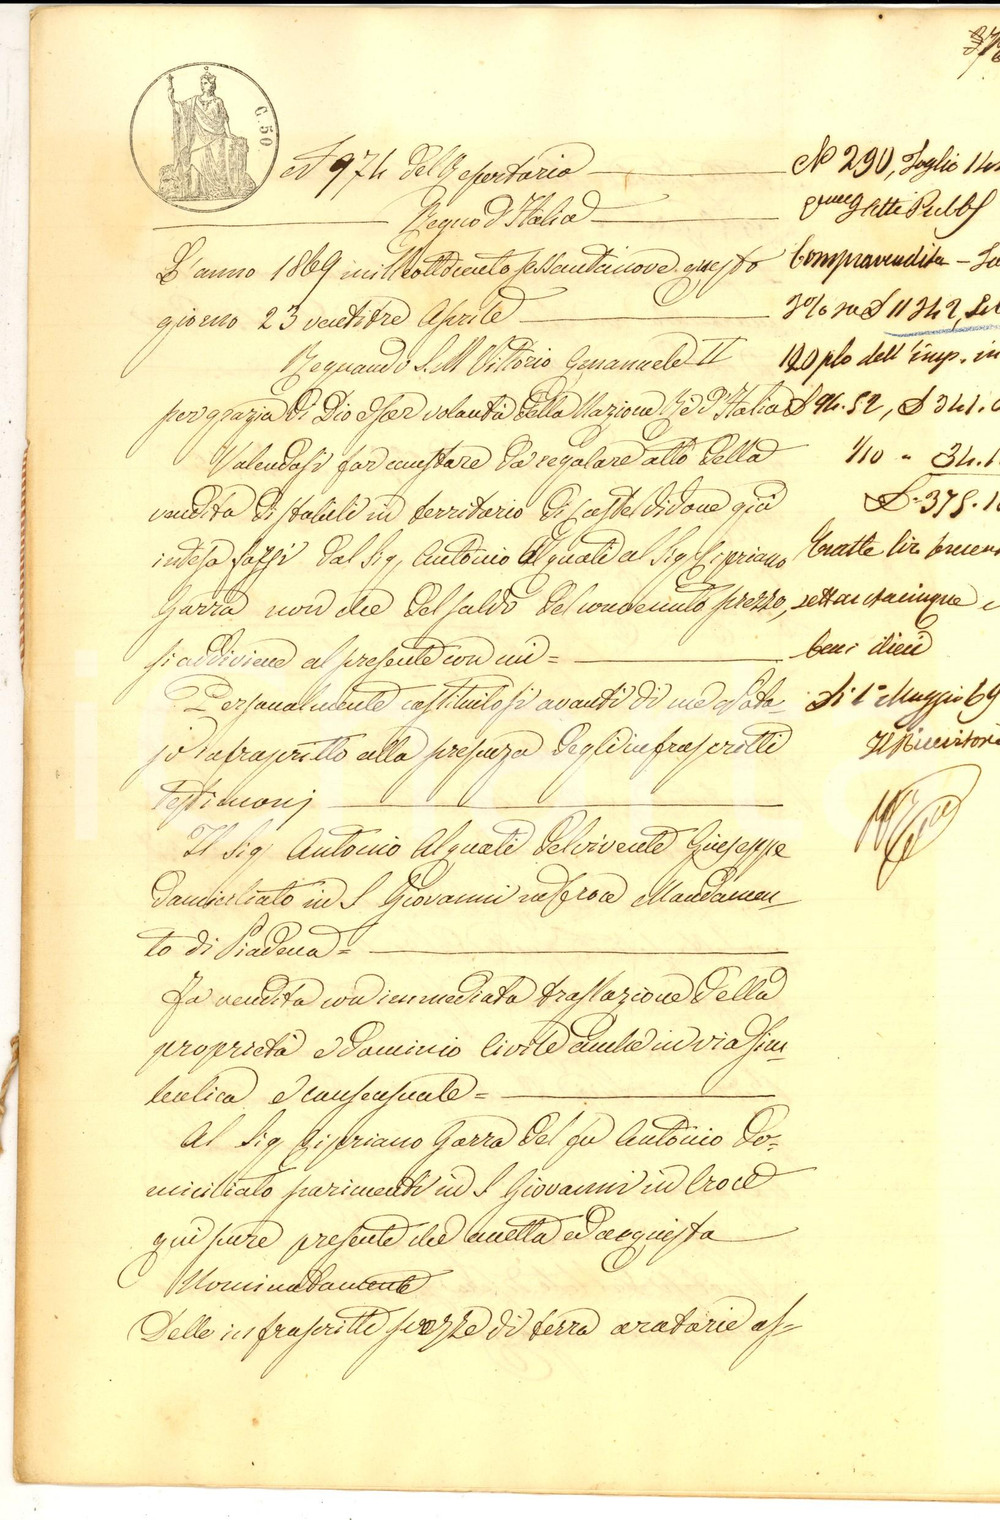 C. 50
N 974 del Repertorio
Regno d'Italia
L'anno 1869 milleottocentosessantanove questo
giorno 23 ventitre Aprile
Regnando S. M. Vittorio Emanuele II
per grazia di Dio e per volontà della Nazione Re d'Italia
Volendosi far constare da regolare atto della
vendita di stabili in territorio di Casteldidone già
intesa fassi dal Sig. Antonio Alquati al Sig. Cipriano
Garra non che del saldo del convenuto prezzo,
si addiviene al presente con cui =
Personalmente costituitosi avanti di me Nota-
jo infrascritto alla presenza degli infrascritti
testimonj
Il Sig Antonio Alquati del vivente Giuseppe
domiciliato in S Giovanni in Croce Mandamen-
to di Piadena =
Fa vendita con immediata traslazione della
proprietà e dominio civile anche in via
e consensuale =
Al Sig Cipriano Garra del fu Antonio Do-
miciliato parimenti in S Giovanni in Croce
qui pure presente che accetta ed acquista
Nominatamente
Delle infrascritte pezze di terra aratorie as-
N 290, Foglio 14
Atti Pubb
Compravendita -
3% su £ 11342,
120plo dell'imp.
£ 94.52, £ 341.
1/10 " 34.1
£ 375.1
Esatte lire
settantacinque e
cent dieci
Li 1° Maggio 69
Il Ricevitore